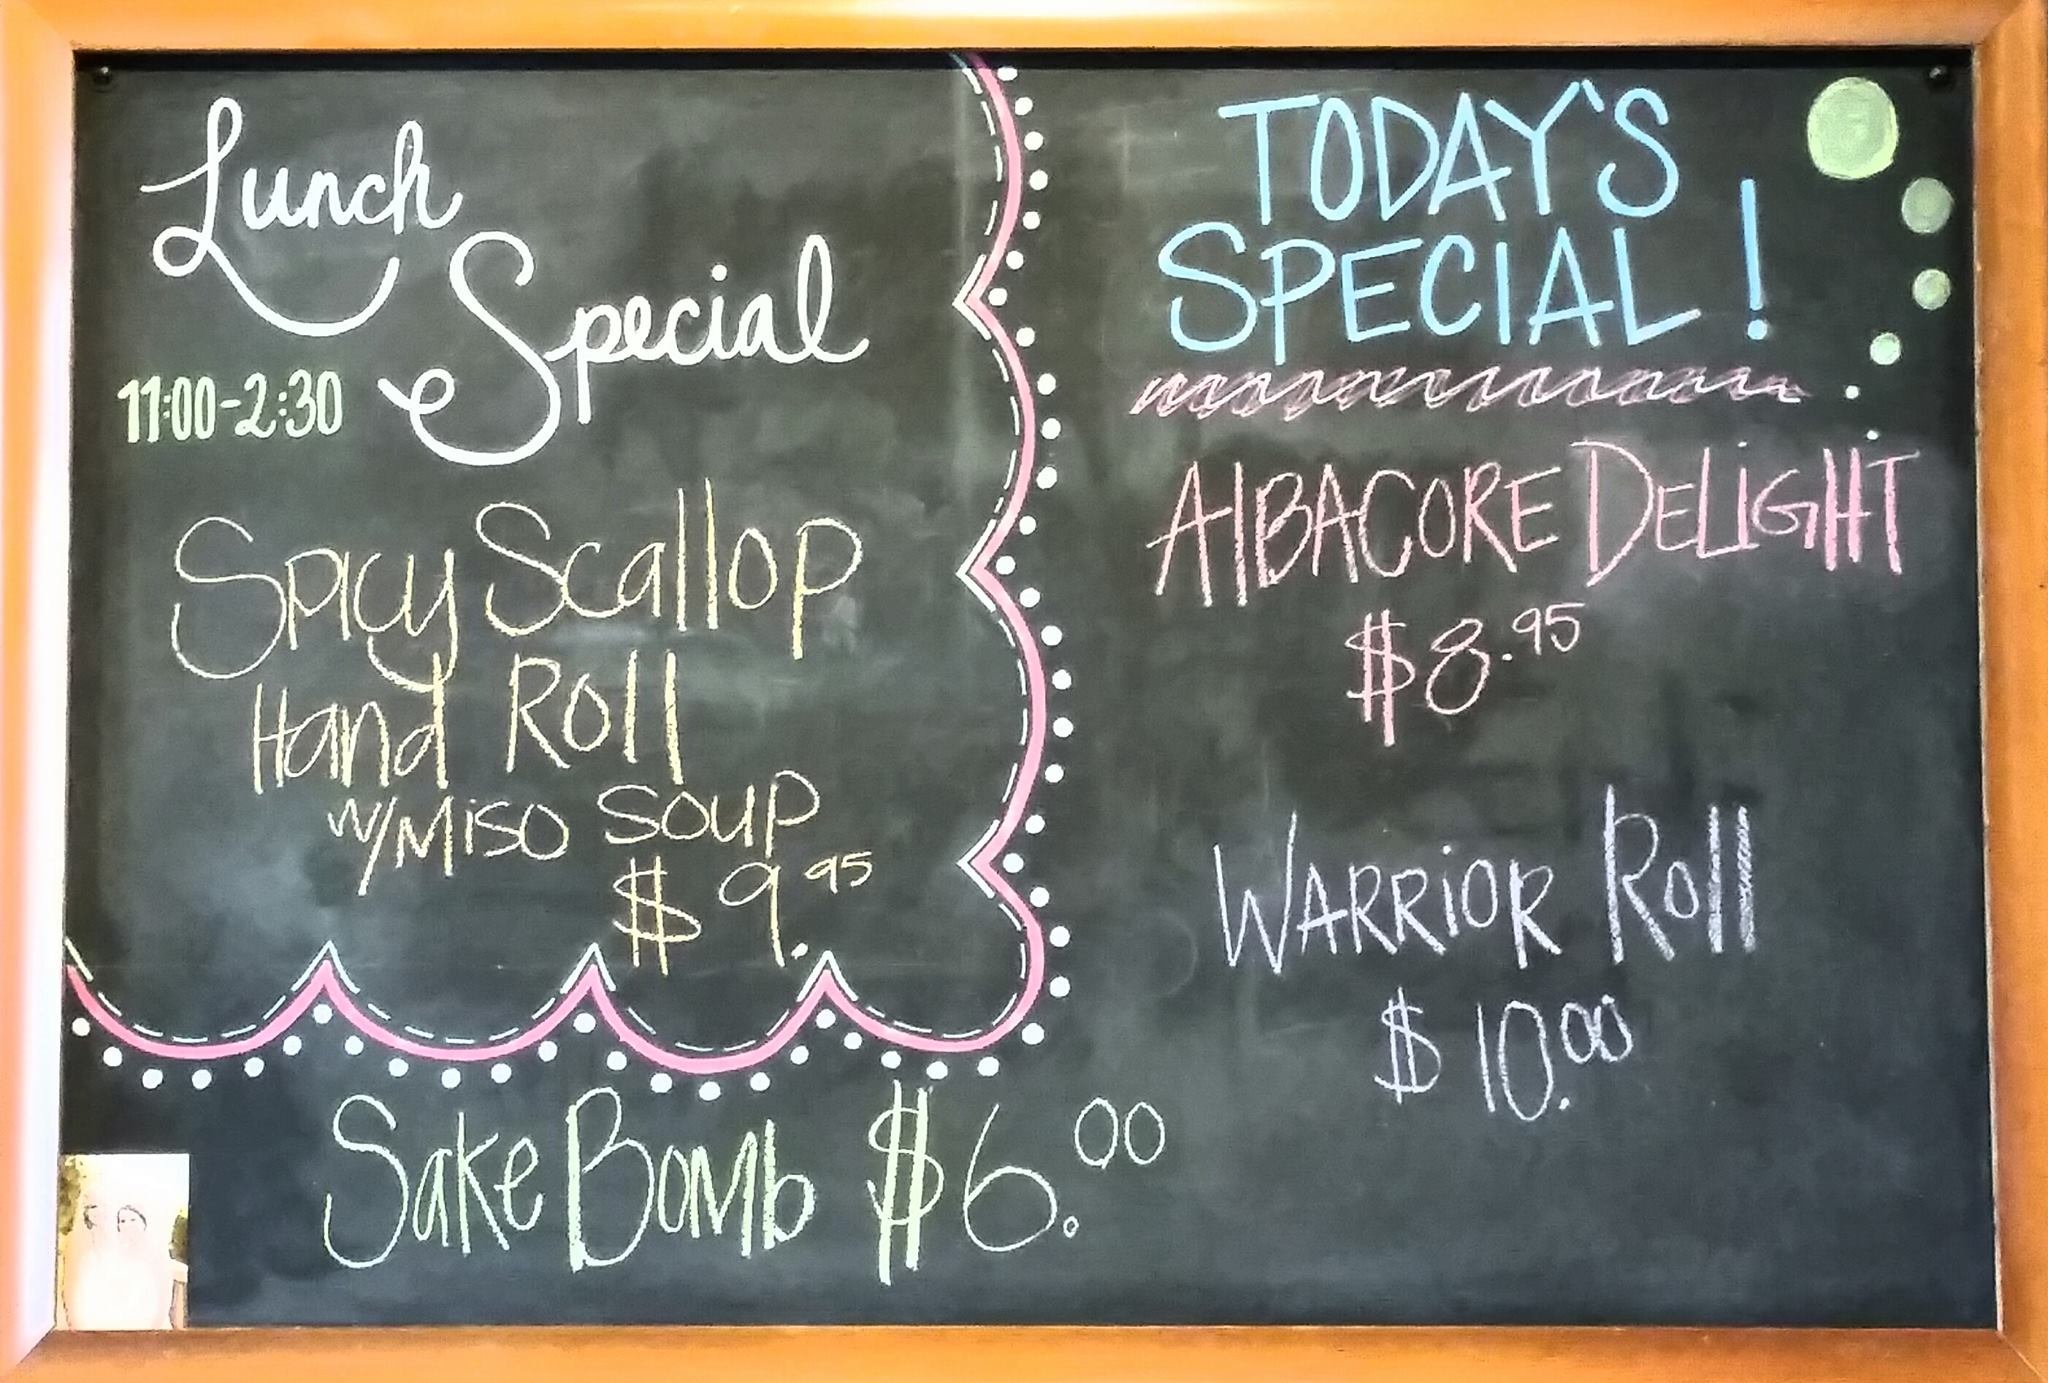 Lunch
Special
11:00-2:30
Spicy Scallop
Hand Roll
w/Miso Soup
$9.95
Sake Bomb $6.00
TODAY'S
SPECIAL!
AlBACORE DELiGHT
$8.95
WARRiOR Roll
$10.00